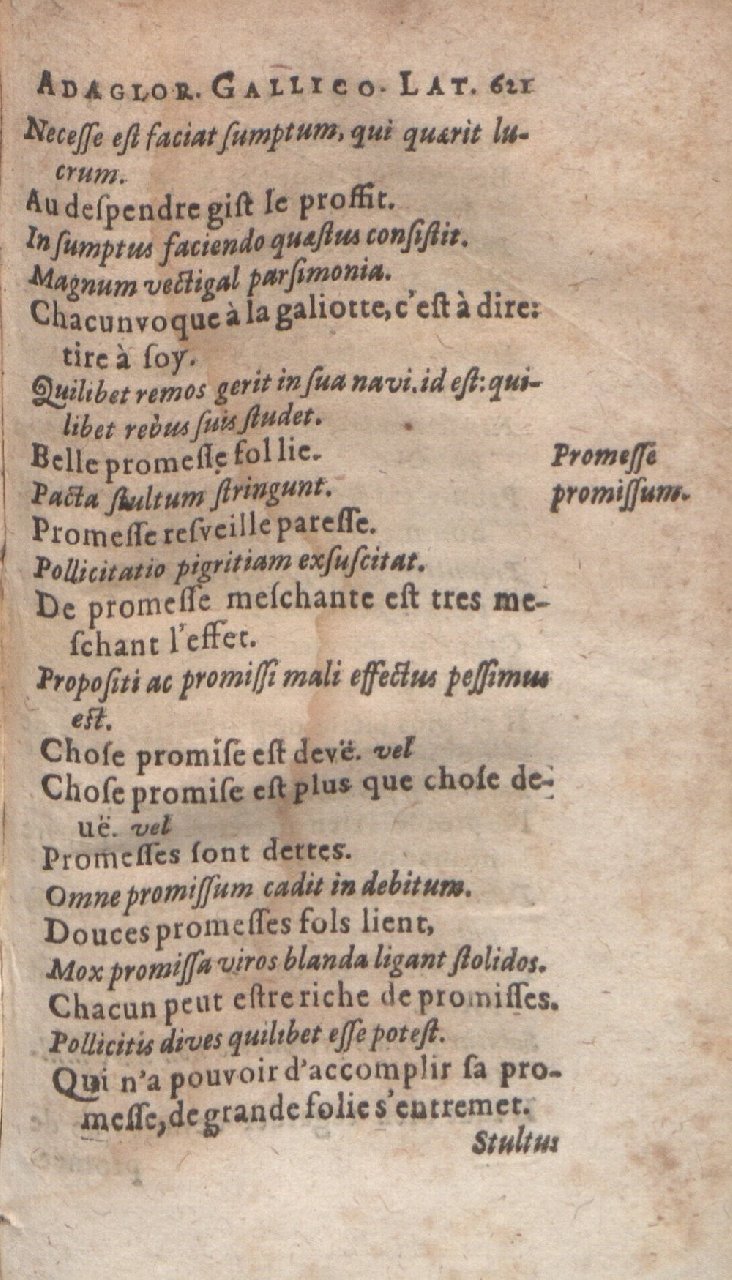 ADAGIOR. GALLICO. LAT. 621
Necesse est faciat sumptum, qui quærit lu-
crum.
Au despendre gist le proffit.
In sumptus faciendo quæstus consistit.
Magnum vectigal parsimonia.
Chacun voque à la galiotte, c'est à dire:
tire à soy.
Quilibet remos gerit in sua navi. id est: qui-
libet rebus suis studet.
Belle promesse fol lie.
Promesse
Pacta stultum stringunt.
promissum.
Promesse resveille paresse.
Pollicitatio pigritiam exsuscitat.
De promesse meschante est tres me-
schant l'effet.
Propositi ac promissi mali effectus pessimus
est.
Chose promise est devë. vel
Chose promise est plus que chose de-
uë. vel
Promesses sont dettes.
Omne promissum cadit in debitum.
Douces promesses fols lient,
Mox promissa viros blanda ligant stolidos.
Chacun peut estre riche de promisses.
Pollicitis dives quilibet esse potest.
Qui n'a pouvoir d'accomplir sa pro-
messe, de grande folie s'entremet.
Stultus